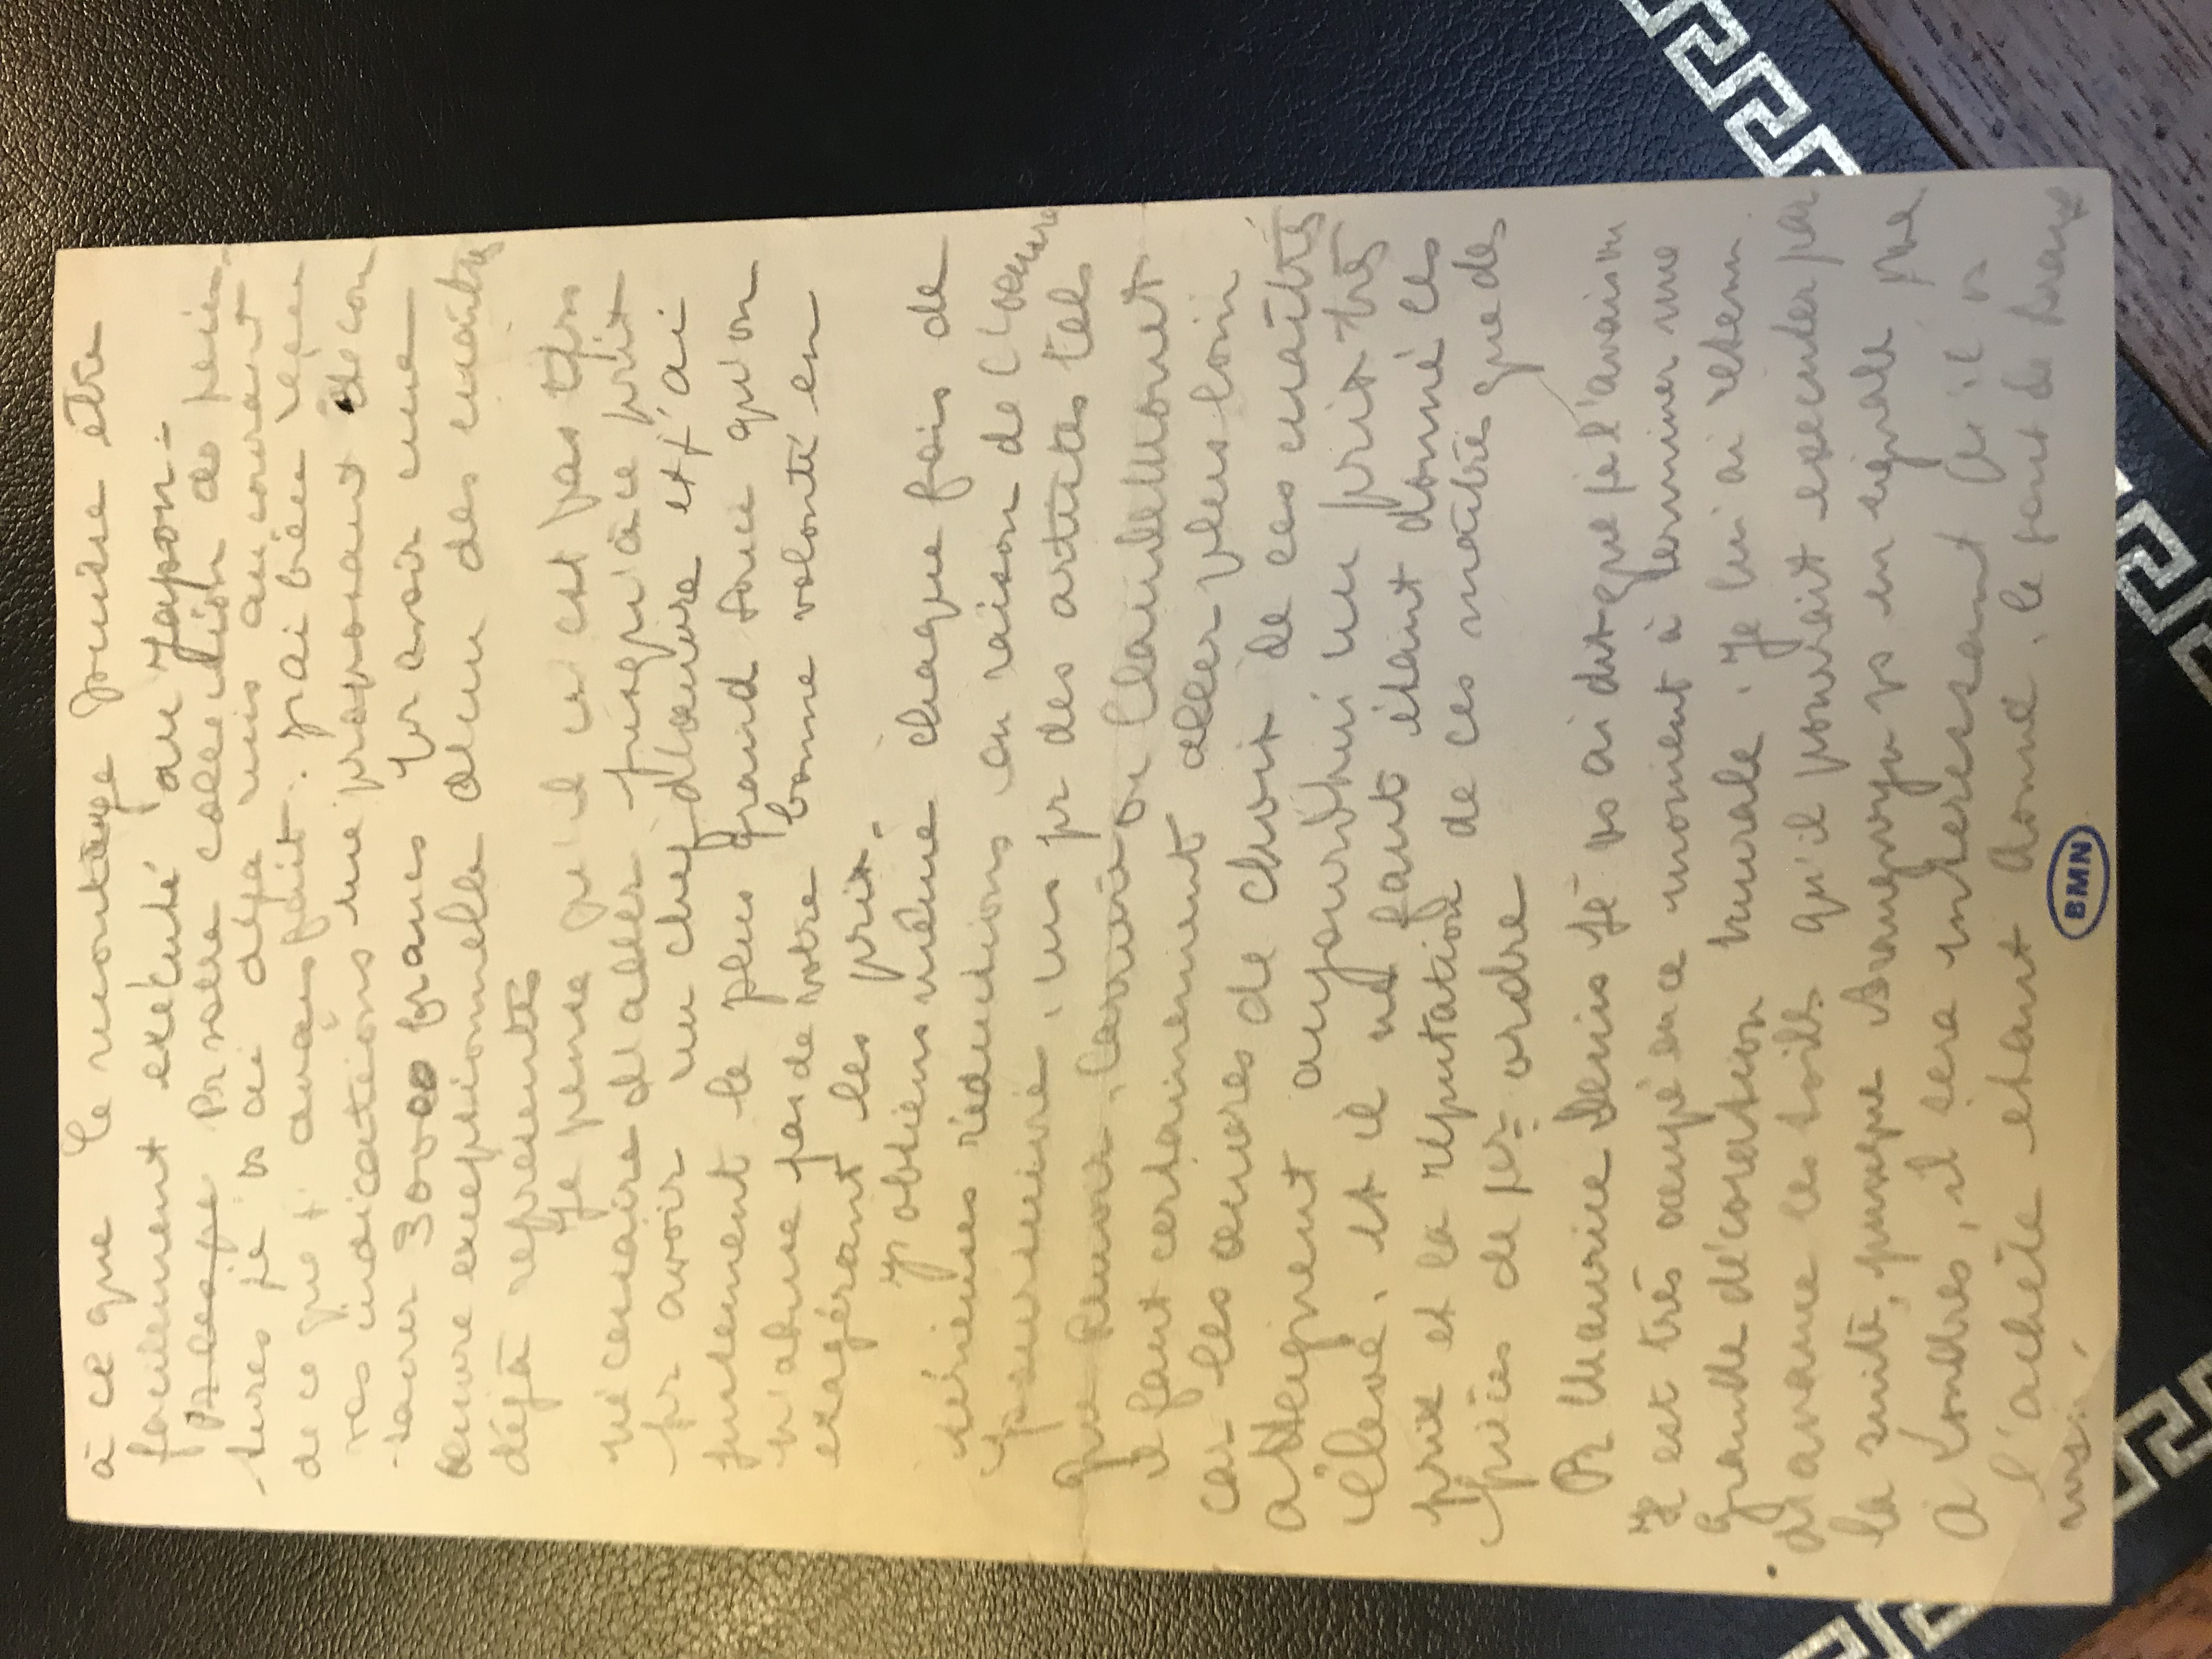 à ce que le montage puisse être
facilement exécuté au Japon -
Pr votre collection de pein-
tures je vs ai déjà mis au courant
de ce que j'avais fait. J'ai bien reçu
vos indications me proposant de con
-sacrer 30000 francs pr avoir une
œuvre exceptionnelle d'un des maîtres
déjà représentés
Je pense qu'il n'est pas tjrs
nécessaire d'aller jusqu'à ce prix
pr avoir un chef d'œuvre et j'ai
justement le plus grand souci qu'on
n'abuse pas de votre bonne volonté en
exagérant les prix.
J'obtiens même chaque fois de
sérieuses réductions en raison de l'œuvre
poursuivie, mais pr des artistes tels
que Renoir, ou Claude Monet
il faut certainement aller plus loin
car les œuvres de choix de ces maîtres
atteignent aujourd'hui un prix très
élevé. Et il ne faut étant donné le
prix et la réputation de ces maîtres que des
pièces de 1er ordre
Pr Maurice Denis je vs ai dit que je l'avais vu
Il est très occupé en ce moment à terminer une
grande décoration murale. Je lui ai retenu
d'avance les toiles qu'il pourrait exécuter par
la suite, puisque Brangwyn vs en signale une
à Londres, il sera intéressant qu'il vs
l'achète étant donné le peu de temps